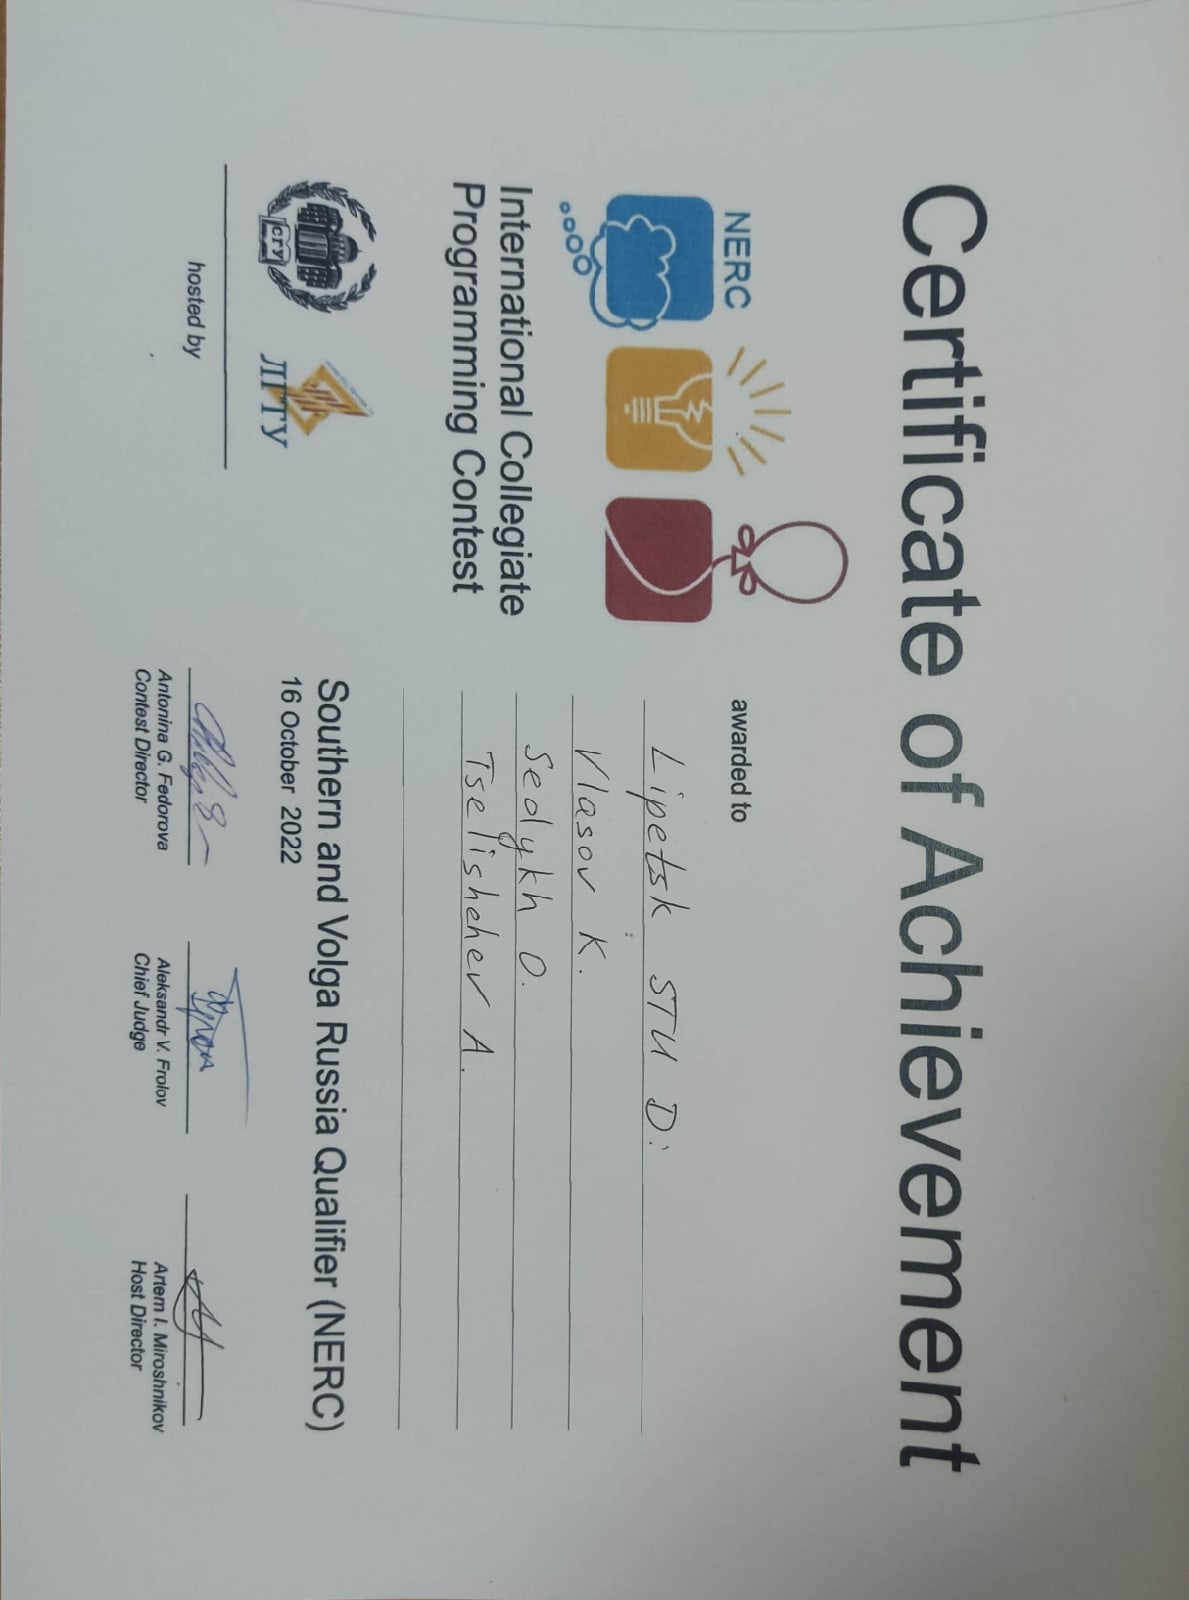 Certificate of Achievement
NERC
International Collegiate
Programming Contest
awarded to
Lipetsk STU D:
Vlasov K.
Sedykh O.
Tselishchev A.
СГУ
ЛГТУ
hosted by
Southern and Volga Russia Qualifier (NERC)
16 October 2022
Antonina G. Fedorova
Contest Director
Aleksandr V. Frolov
Chief Judge
Artem I. Miroshnikov
Host Director